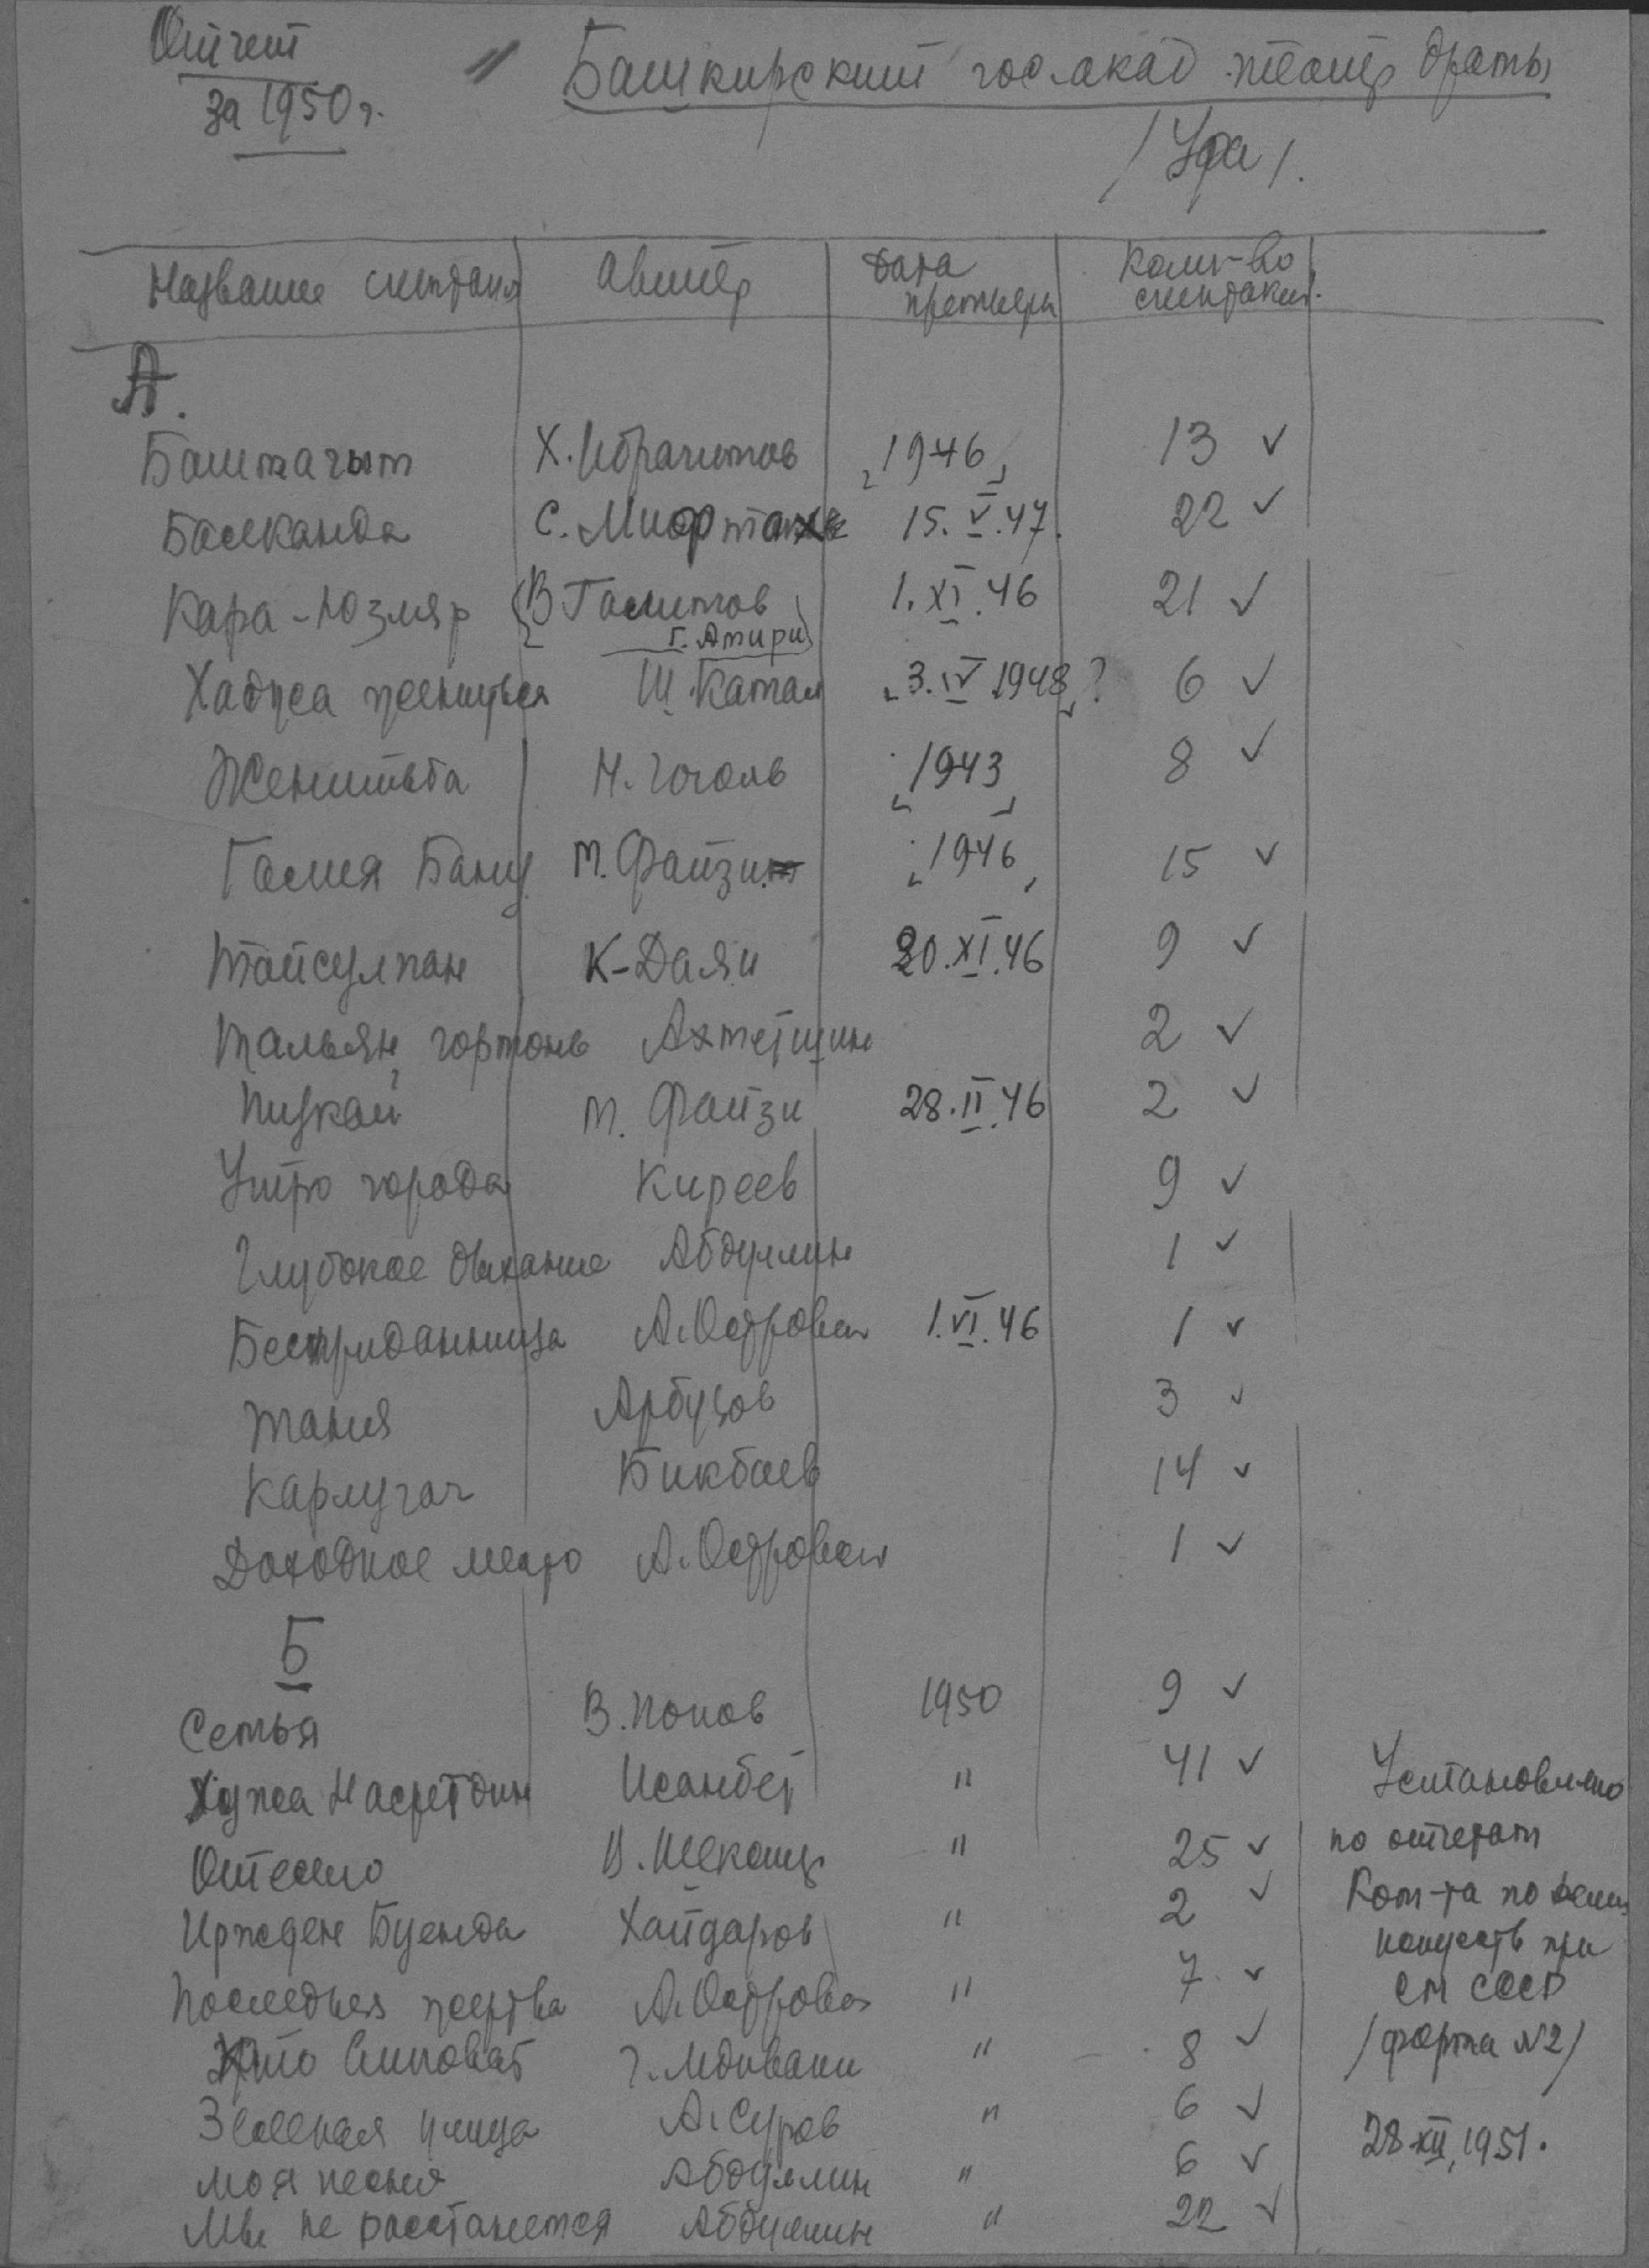 Отчет
за 1950 г.
" Башкирский гос. акад театр драмы
/Уфа/.
Название спектакля Автор Дата премьеры Колич-во спектаклей
А.
Башмагым Х. Ибрагимов 1946 13 ✓
Балкантау С. Мифтахов 15.V.47. 22 ✓
Кара-Юзляр {В Галимов 1.XI.46 21 ✓
Г. Амири}
Хаджа женится Ш. Камал 3.IV.1948? 6 ✓
Женитьба Н. Гоголь 1943 8 ✓
Галия Бану М. Файзи 1946 15 ✓
Тансулпан К-Даян 20.XI.46 9 ✓
Тальян, гормонь Ахметшин 2 ✓
М. Файзи 28.II.46 2 ✓
Утро города Киреев 9 ✓
Глубокое дыхание Абдуллин 1 ✓
Бесприданница А. Островск 1.VI.46 1 ✓
Таня Арбузов 3 ✓
Карлугач Бикбаев 14 ✓
Доходное место А. Островск 1 ✓
Б
Семья В. Попов 1950 9 ✓
Хужа Насретдин Исанбет " 41 ✓ Установлено
Отелло В. Шекспир " 25 ✓ по отчетам
Хайдаров " 2 ✓ Ком-та по делам
Последняя жертва А. Островск " 7 ✓ искусств при
Кто виноват Г. Мдивани " 8 ✓ СМ СССР
/форма №2/
Зеленая улица А. Суров " 6 ✓
Моя песня Абдуллин " 6 ✓ 28.XII.1951.
Мы не расстанемся Абдуллин " 22 ✓